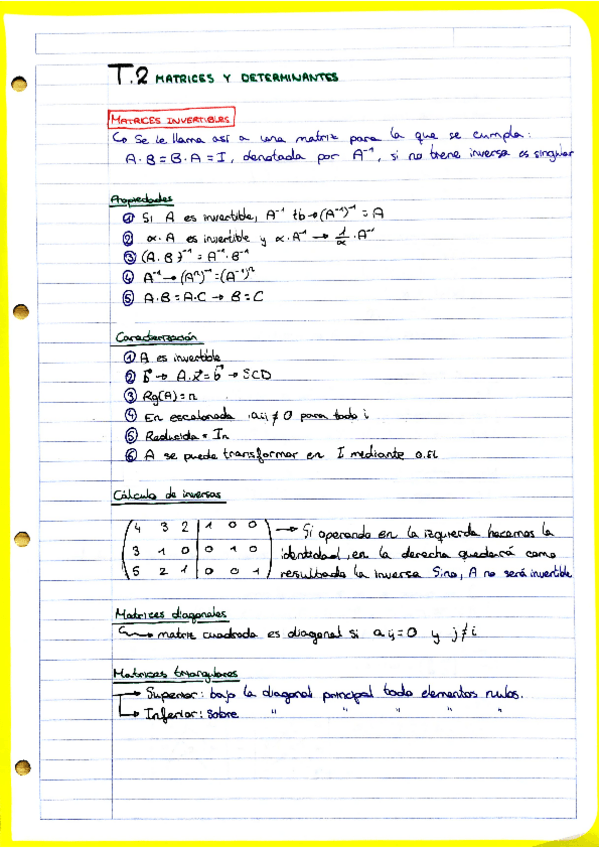 T.2 MATRICES Y DETERMINANTES
MATRICES INVERTIBLES
↳ Se le llama así a una matriz para la que se cumpla:
A·B=B·A=I, denotada por A⁻¹, si no tiene inversa es singular
Propiedades
① Si A es invertible, A⁻¹ tb→(A⁻¹)⁻¹=A
② α·A es invertible y α·A⁻¹ → 1/α·A⁻¹
③ (A·B)⁻¹=A⁻¹·B⁻¹
④ A⁻¹→(Aⁿ)⁻¹=(A⁻¹)ⁿ
⑤ A·B=A·C → B=C
Caracterización
① A es invertible
② b⃗ → A·x⃗=b⃗ → SCD
③ Rg(A)=n
④ En escalonada aij≠0 para todo i
⑤ Reducida = In
⑥ A se puede transformar en I mediante o.el
Cálculo de inversas
4 3 2 | 1 0 0 → Si operando en la izquierda hacemos la
3 1 0 | 0 1 0 identidad, en la derecha quedará como
5 2 1 | 0 0 1 resultado la inversa Sino, A no será invertible
Matrices diagonales
↳ matriz cuadrada es diagonal si aij=0 y j≠i
Matrices triangulares
→ Superior: bajo la diagonal principal todo elementos nulos.
↳ Inferior: sobre " " " " "